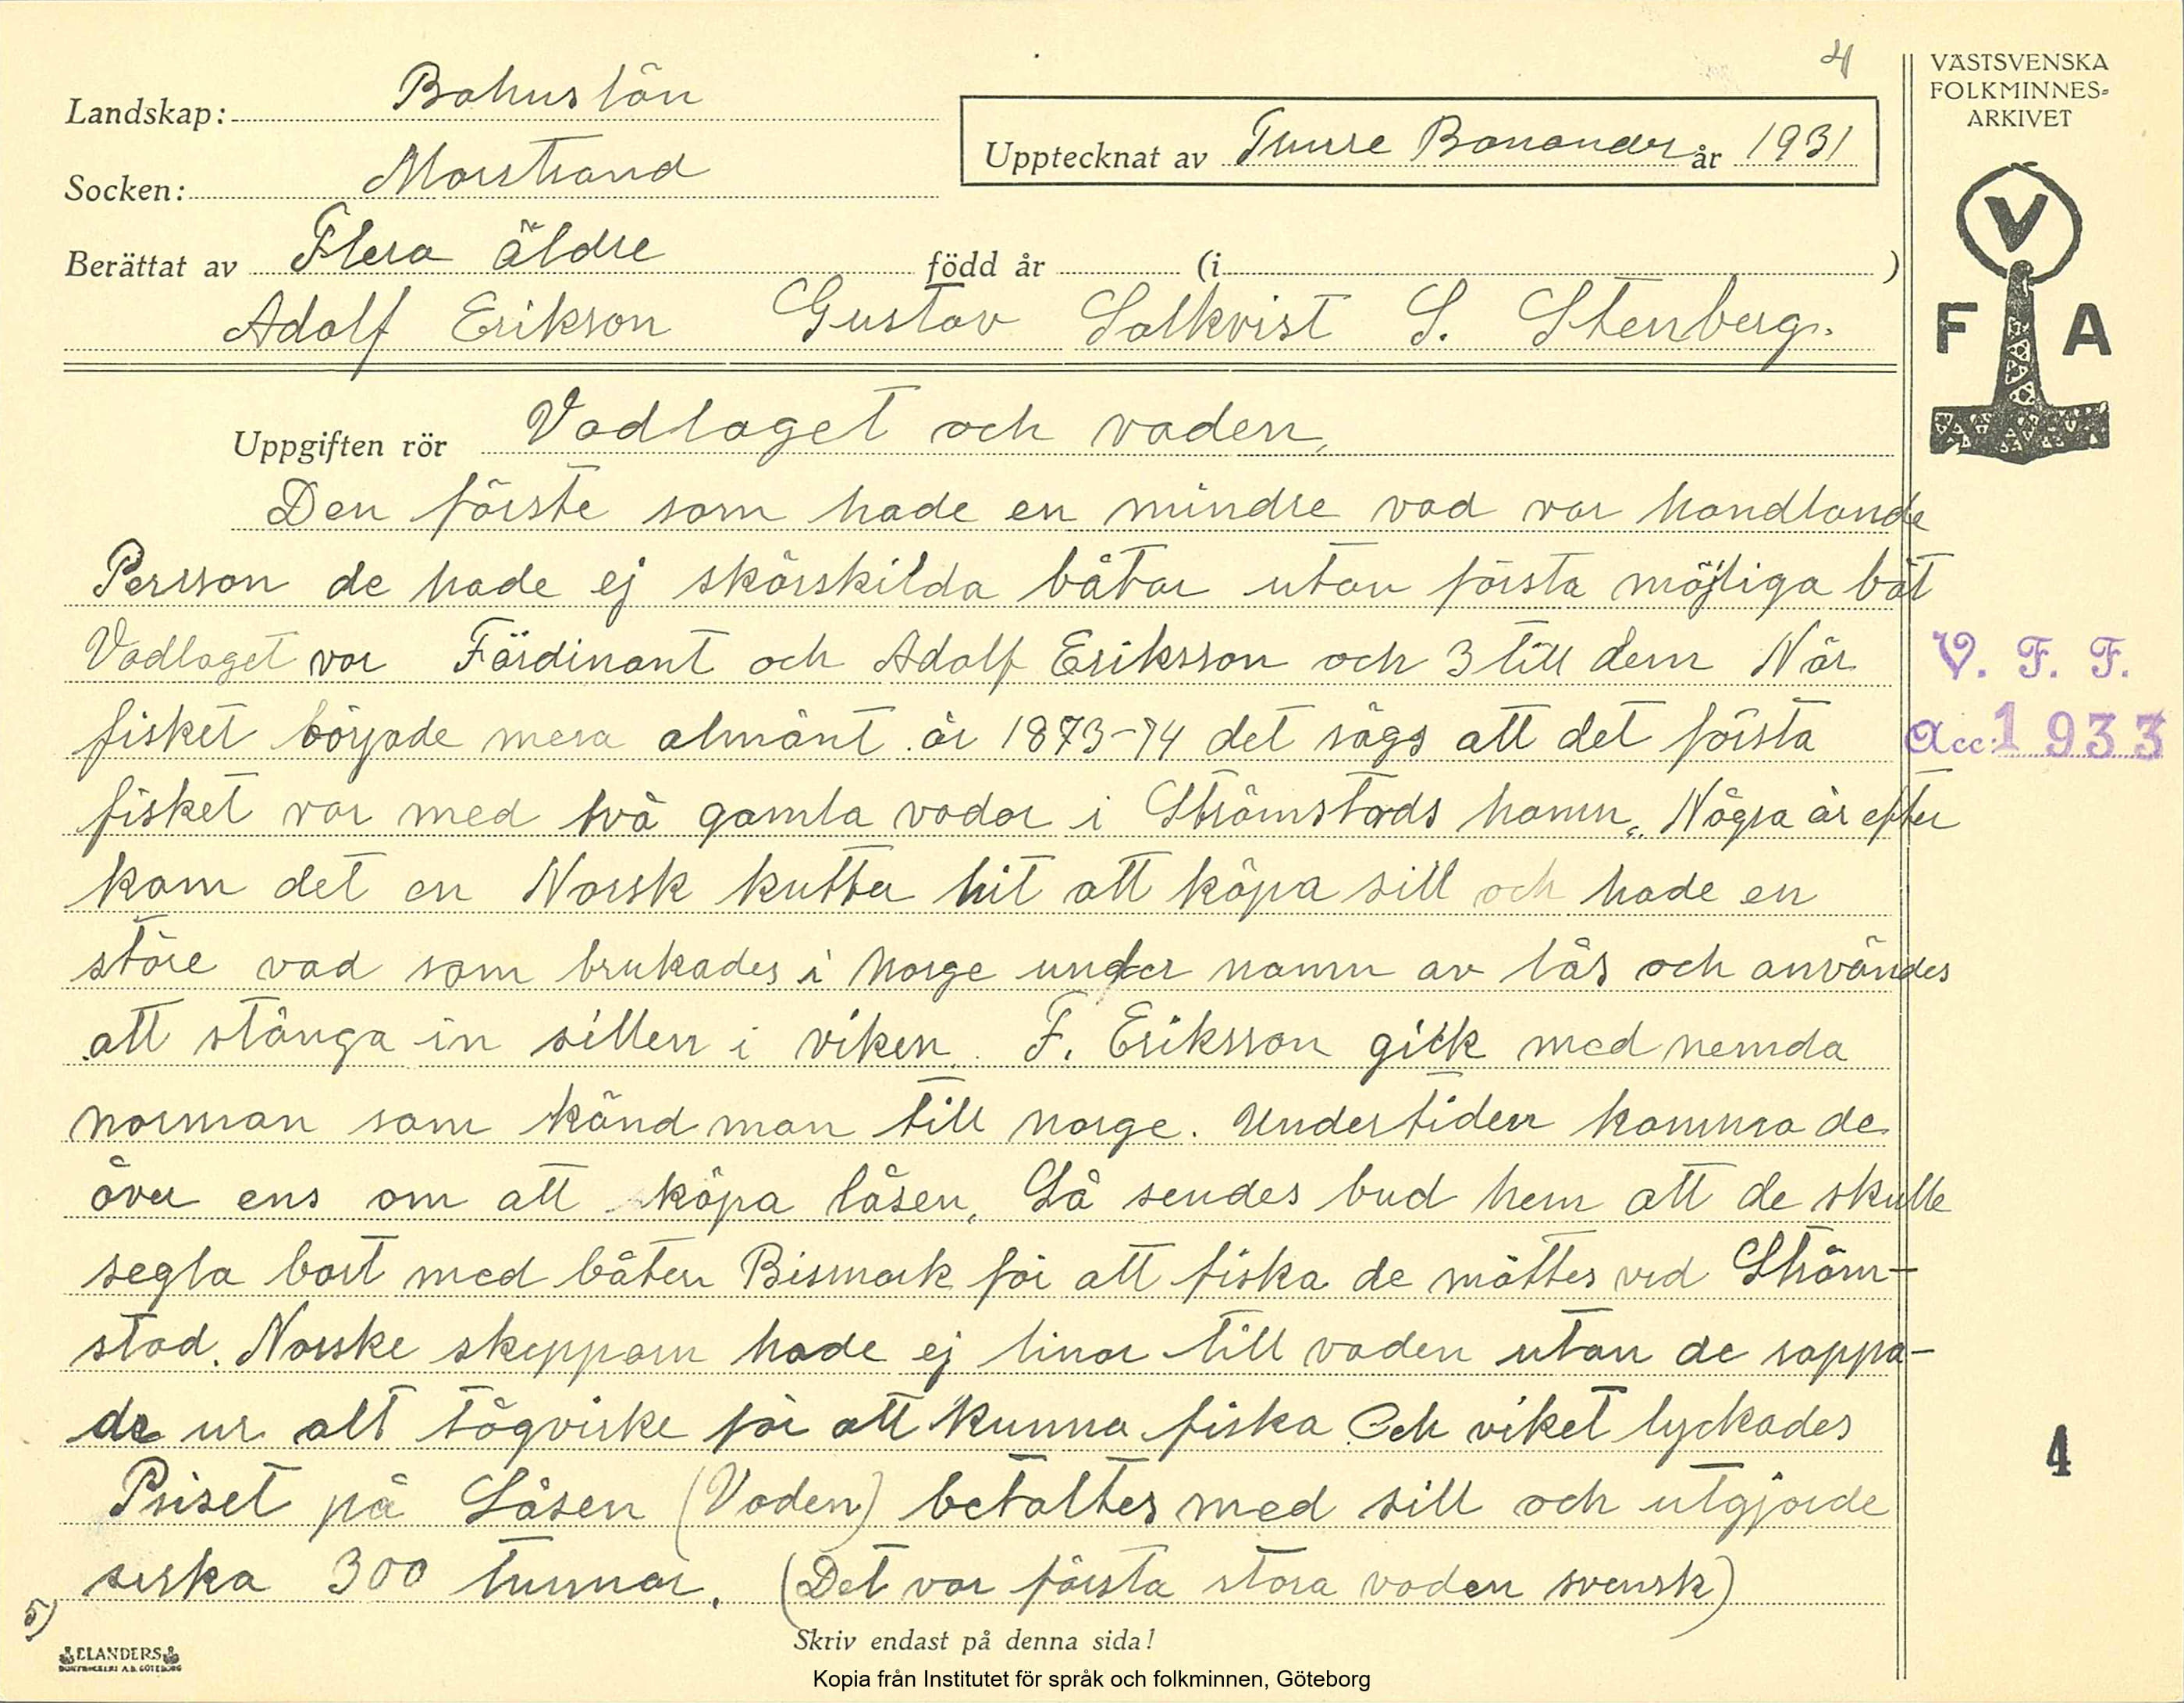 4
VÄSTSVENSKA
FOLKMINNES-
ARKIVET
Landskap: Bohuslän
Upptecknat av Thure Bonander år 1931
Socken: Marstrand
Berättat av Flera äldre född år (i )
Adolf Erikson Gustav Salkvist S. Stenberg.
V
F A
Uppgiften rör Vadlaget och vaden,
Den förste som hade en mindre vad var handlande
Persson de hade ej skörskilda båtar utan första möjliga båt
Vadlaget var Färdinant och Adolf Eriksson och 3 till dem När
fisket började mera almänt år 1873-74 det sägs att det första
fisket var med två gamla vadar i Strömstads hamn. Några år efter
kom det en Norsk kutter hit att köpa sill och hade en
störe vad som brukades i Norge under namn av lås och användes
att stänga in sillen i viken. F. Eriksson gick med nemda
norman som känd man till norge. Undertiden kommo de
över ens om att köpa låsen, Så sendes bud hem att de skulle
segla bort med båten Bismark för att fiska de möttes ved Ström-
stad. Norske skepparn hade ej linor till vaden utan de rappa-
de ur alt tågvirke för att kunna fiska Och viket lyckades
Priset på Låsen (Vaden) betaltes med sill och utgjorde
sirka 300 tunnor. (Det var första stora vaden svensk)
V. F. F.
Acc: 1933
4
5)
ELANDERS
BOKTRYCKERI A.B. GÖTEBORG
Skriv endast på denna sida!
Kopia från Institutet för språk och folkminnen, Göteborg